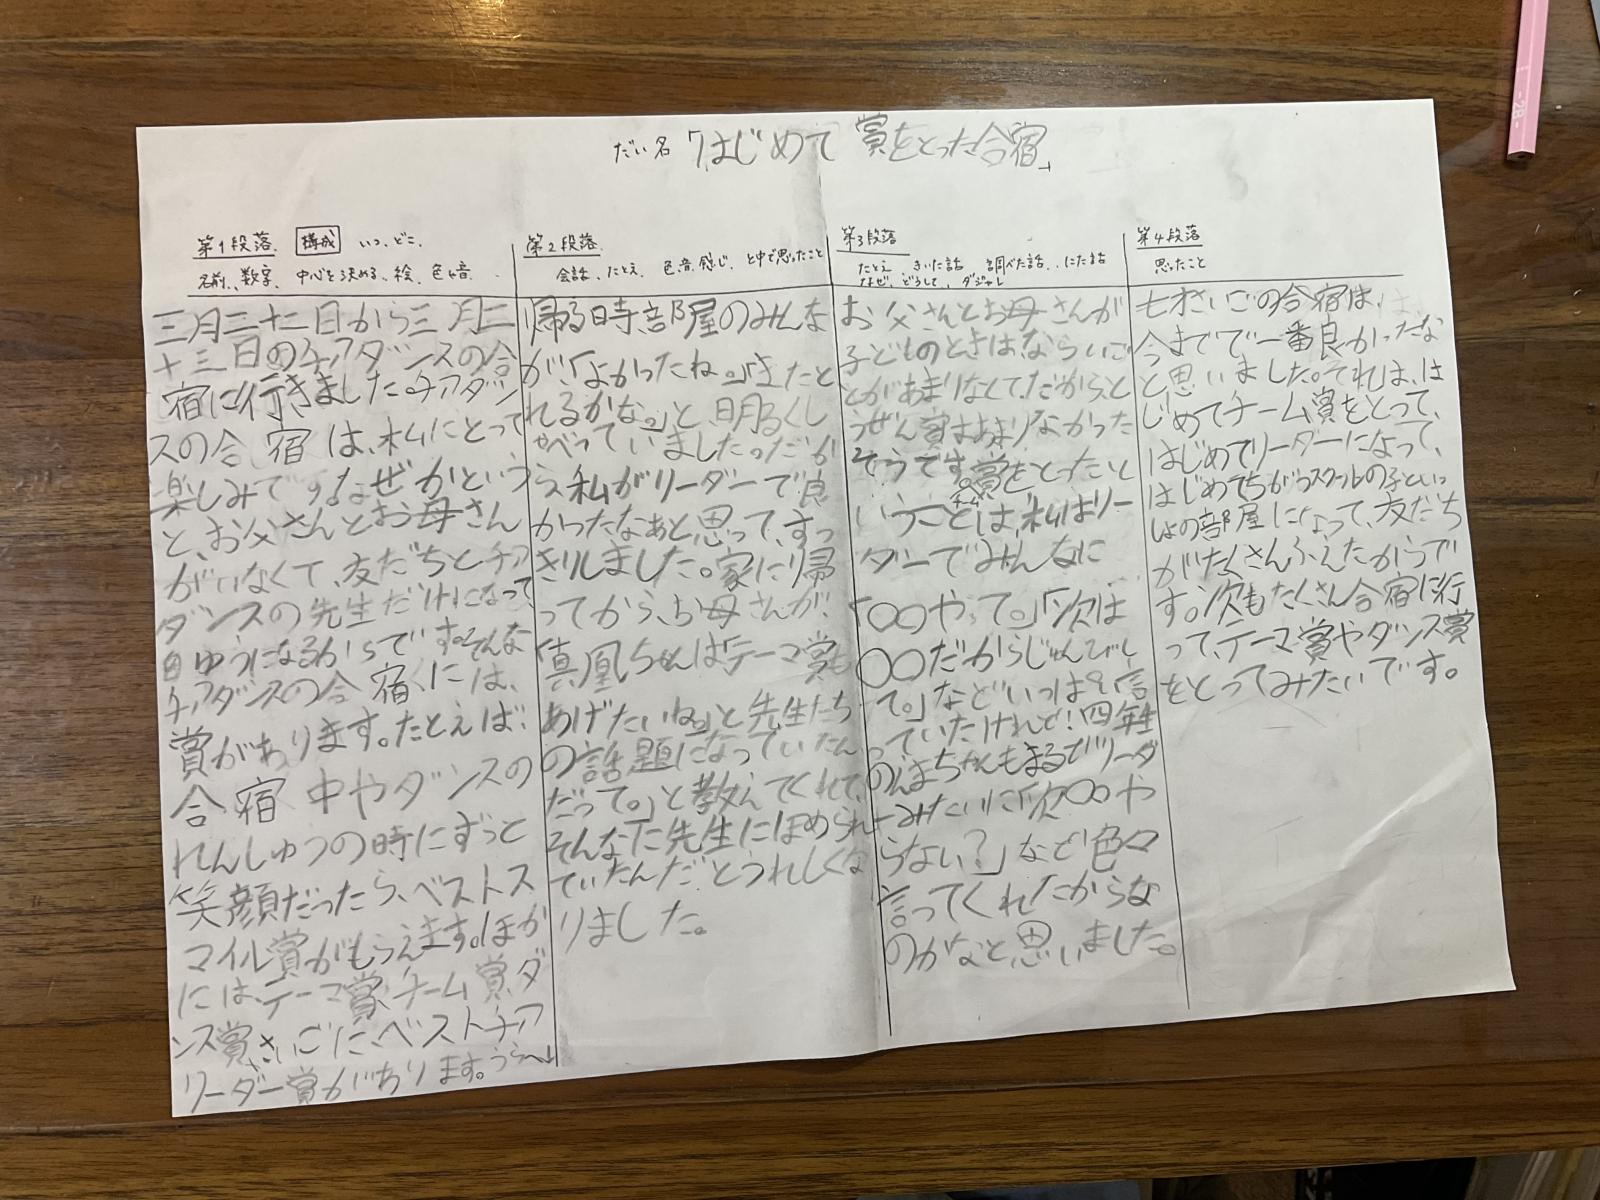 だい名「はじめて賞をとった合宿」
第1段落 構成 いつ、どこ、
名前、数字、中心を決める、絵、色や音、
三月二十二日から三月二
十三日のチアダンスの合
宿に行きました。チアダン
スの合宿は、私にとって
楽しみです。なぜかという
と、お父さんとお母さん
がいなくて、友だちとチア
ダンスの先生だけになって、
自ゆうになるからです。そんな
チアダンスの合宿には、
賞があります。たとえば、
合宿中やダンスの
れんしゅうの時にずっと
笑顔だったら、ベストス
マイル賞がもらえます。ほか
には、テーマ賞、チーム賞、ダ
ンス賞、さいごに、ベストチア
リーダー賞があります。うらへ↓
第2段落
会話、たとえ、色、音、感じ、と中で思ったこと
帰る時、部屋のみんな
が、「よかったね。」「またと
れるかな。」と、明るくし
ゃべっていました。だか
ら、私がリーダーで良
かったなぁと思って、すっ
きりしました。家に帰
ってから、お母さんが、
「真凰ちゃんは「テーマ賞も
あげたいね。」と先生たち
の話題になっていたん
だって。」と教えてくれて、
そんなに先生にほめられ
ていたんだとうれしくな
りました。
第3段落
たとえ きいた話 調べた話、にた話
なぜ、どうして、ダジャレ
お父さんとお母さんが
子どものときは、ならいご
とがあまりなくて、だから、と
うぜん賞はあまりなかった
そうです。賞をとったと
チーム
いうことは、私はリー
ダーでみんなに
「〇〇やって。」「次は
〇〇だからじゅんびし
て。」などいっぱい言
っていたけれど!四年生
のんまちゃんもまるでリーダ
ーみたいに「次〇〇や
らない?」など色々
言ってくれたからな
のかなと思いました。
第4段落
思ったこと
七才さいごの合宿は、
今までで一番良かったな
と思いました。それは、は
じめてチーム賞をとって、
はじめてリーダーになって、
はじめてちがうスクールの子といっ
しょの部屋になって、友だち
がたくさんふえたからで
す。次もたくさん合宿に行
って、テーマ賞やダンス賞
をとってみたいです。
-2B-